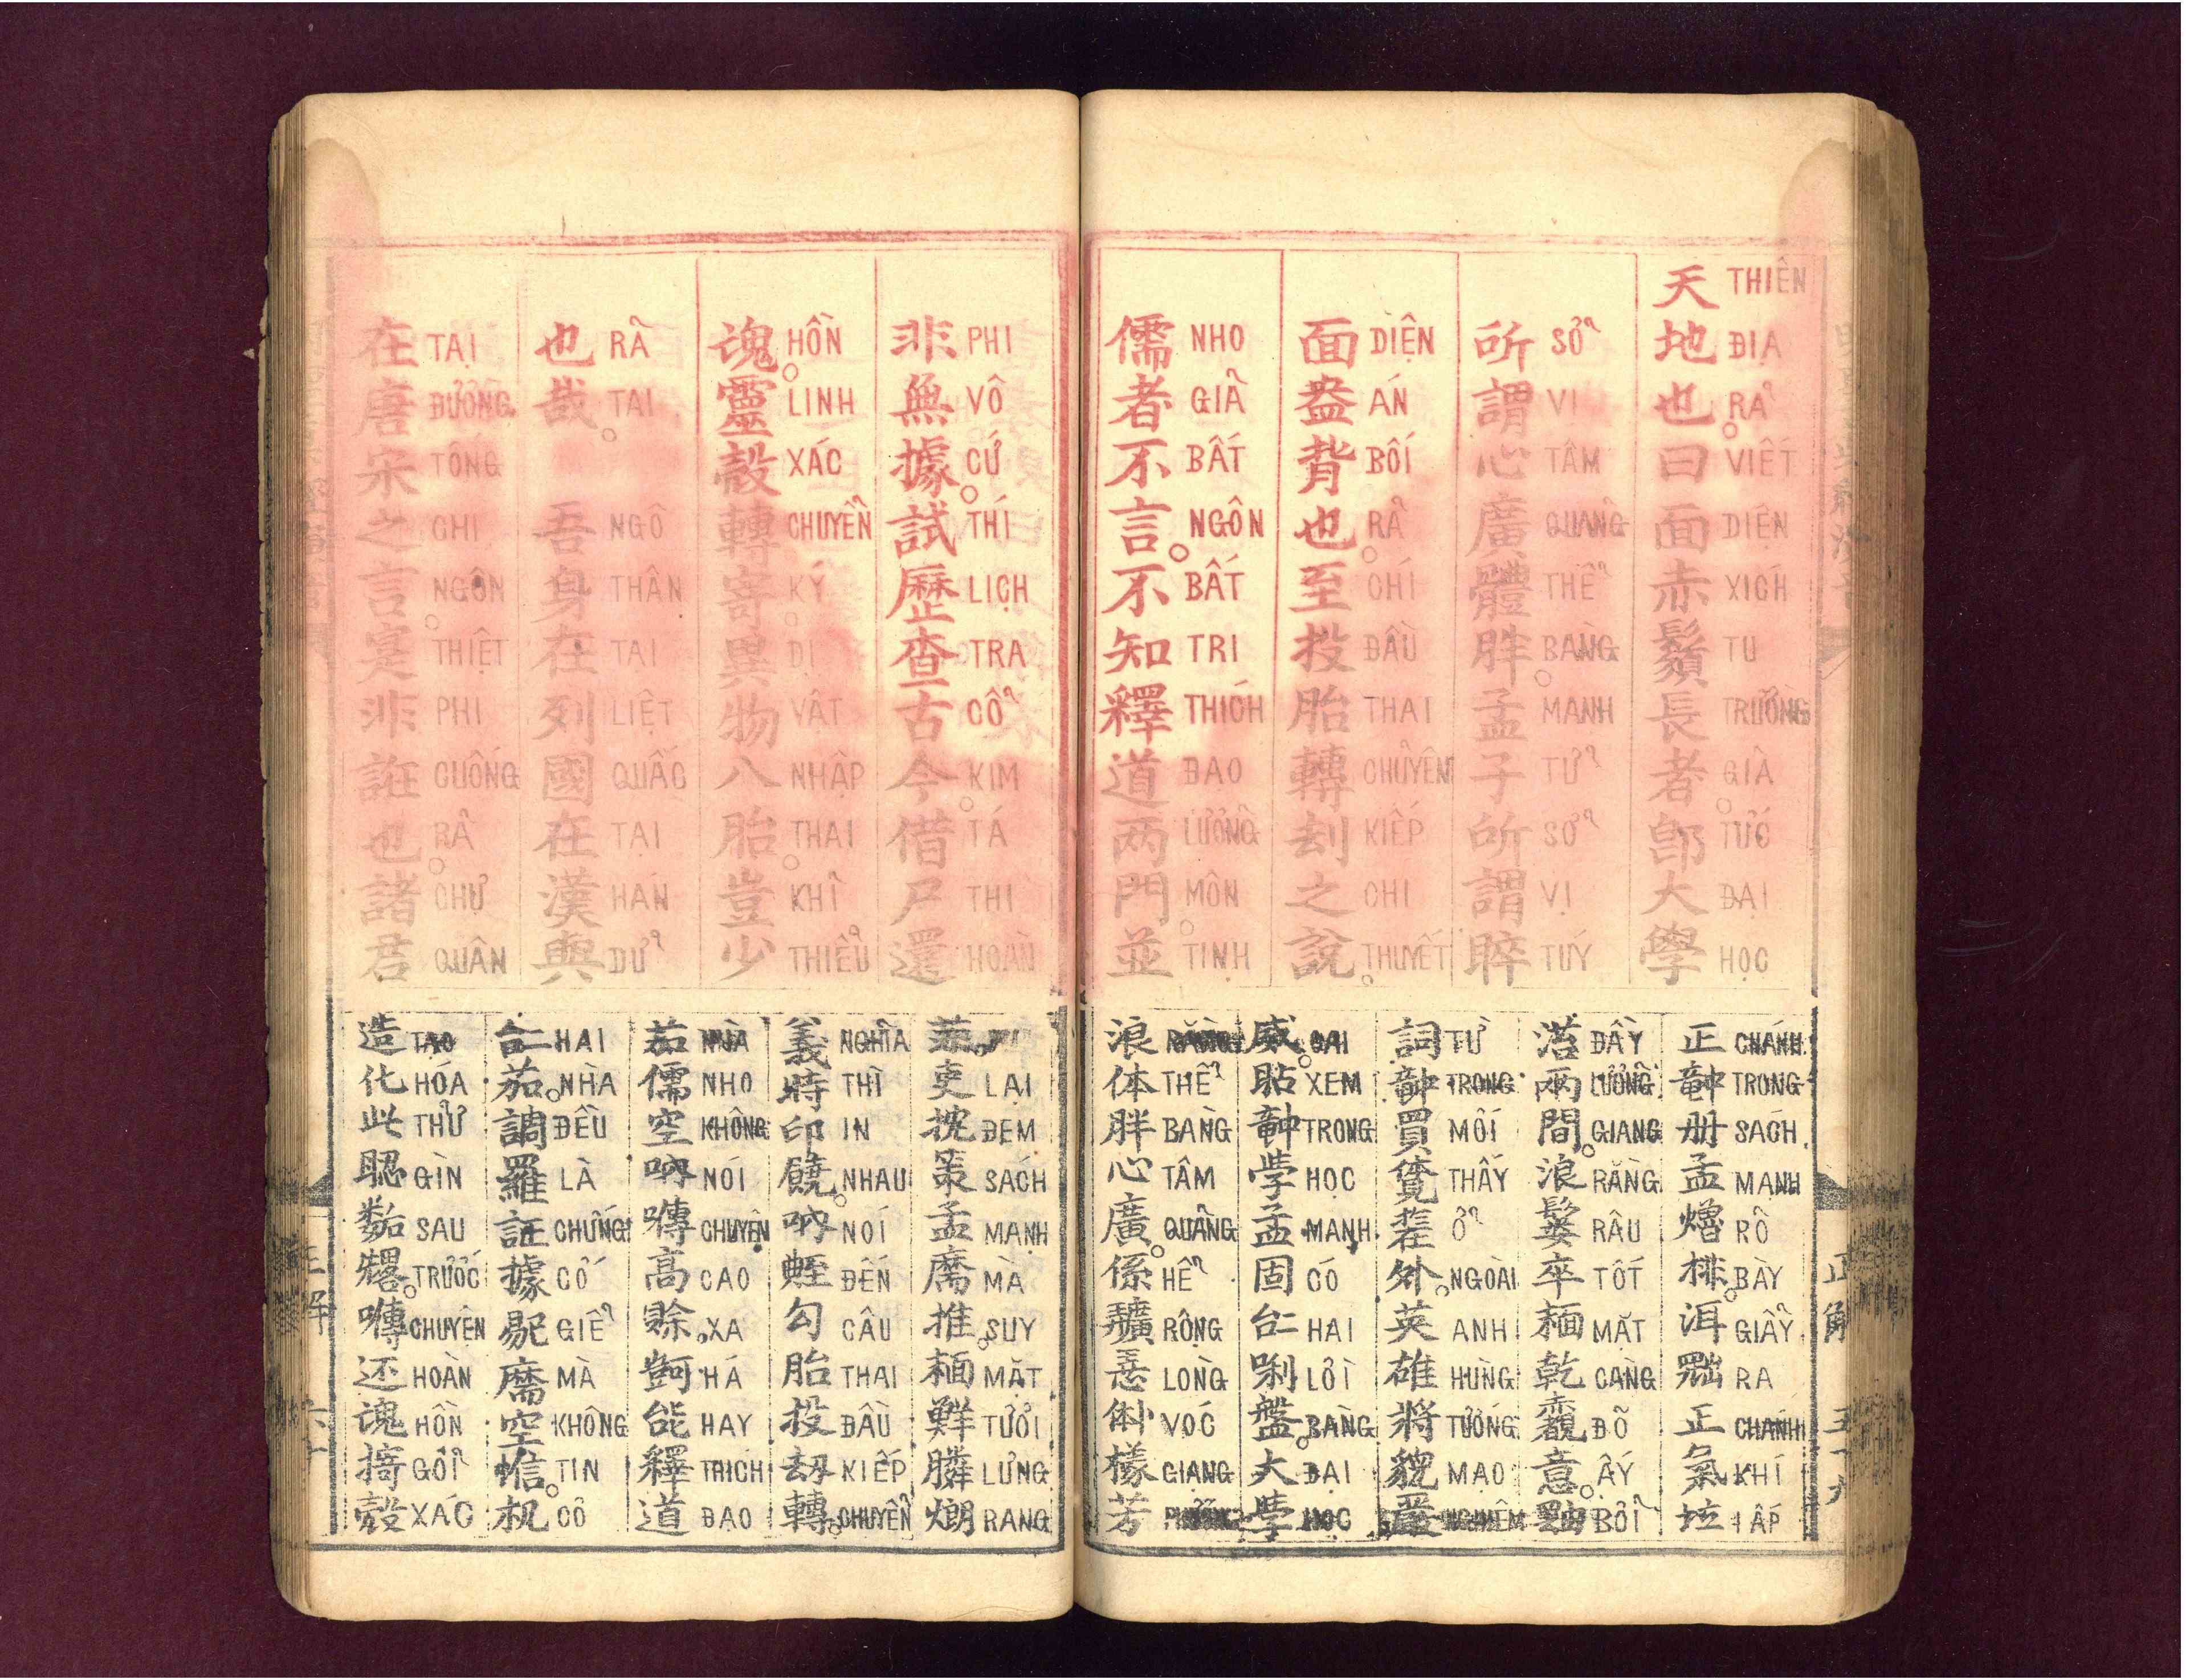 天地也曰面赤鬚長者即大學
THIÊN ĐỊA RẢ VIẾT DIỆN XÍCH TU TRƯỜNG GIẢ TỨC ĐẠI HỌC
所謂心廣體胖孟子所謂睟
SỞ VỊ TÂM QUẢNG THỂ BÀNG MẠNH TỬ SỞ VỊ TÚY
面盎背也至投胎轉刦之說
DIỆN ÁN BỐI RẢ CHÍ ĐẦU THAI CHUYỂN KIẾP CHI THUYẾT
儒者不言不知釋道两門並
NHO GIẢ BẤT NGÔN BẤT TRI THÍCH ĐẠO LƯỠNG MÔN TỊNH
正𥪝册孟𤍊排洱𦋦正氣垃
CHÁNH TRONG SÁCH MẠNH RÕ BÀY GIẤY RA CHÁNH KHÍ LẤP
𣹓兩間浪𩯁卒𩈘乾𧹼意𤳸
ĐẦY LƯỠNG GIANG RẰNG RÂU TỐT MẶT CÀNG ĐỎ ẤY BỞI
詞𥪝買覓𨑜外英雄將貌嚴
TỪ TRONG MỚI THẤY Ở NGOÀI ANH HÙNG TƯỚNG MẠO NGHIÊM
威𥅞𥪝學孟固𠄩唎盤大學
OAI XEM TRONG HỌC MẠNH CÓ HAI LỜI BÀNG ĐẠI HỌC
浪体胖心廣係𢌌𢚸𠇕樣芳
RẰNG THỂ BÀNG TÂM QUẢNG HỄ RỘNG LÒNG VÓC GIẠNG
非無據試歷查古今借尸還
PHI VÔ CỨ THÍ LỊCH TRA CỔ KIM TÁ THI HOÀN
魂靈殼轉寄異物入胎豈少
HỒN LINH XÁC CHUYỂN KÝ DỊ VẬT NHẬP THAI KHỈ THIỂU
也哉 吾身在列國在漢與
RẢ TAI NGÔ THÂN TẠI LIỆT QUẤC TẠI HÁN DỬ
在唐宋之言寔非誑也諸君
TẠI ĐƯỜNG TỐNG CHI NGÔN THIỆT PHI CUỐNG RẢ CHƯ QUÂN
吏扰𠸗孟𦓡推𩈘鮮𦡟烺
LẠI ĐEM SÁCH MẠNH MÀ SUY MẶT TƯƠI LƯNG RANG
義時印饒呐𦤾勾胎投刼轉
NGHĨA THÌ IN NHAU NÓI ĐẾN CÂU THAI ĐẦU KIẾP CHUYỂN
茹儒空呐囀高賒㗇能釋道
NHÀ NHO KHÔNG NÓI CHUYỆN CAO XA HÁ HAY THÍCH ĐẠO
𠄩茹調羅証據易𦓡空信机
HAI NHÀ ĐỀU LÀ CHỨNG CỚ GIỄ MÀ KHÔNG TIN CỔ
造化此𦖻𢖖𠓀囀还魂掎殼
TẠO HÓA THỬ GÌN SAU TRƯỚC CHUYỆN HOÀN HỒN GỞI XÁC
正解
五十九